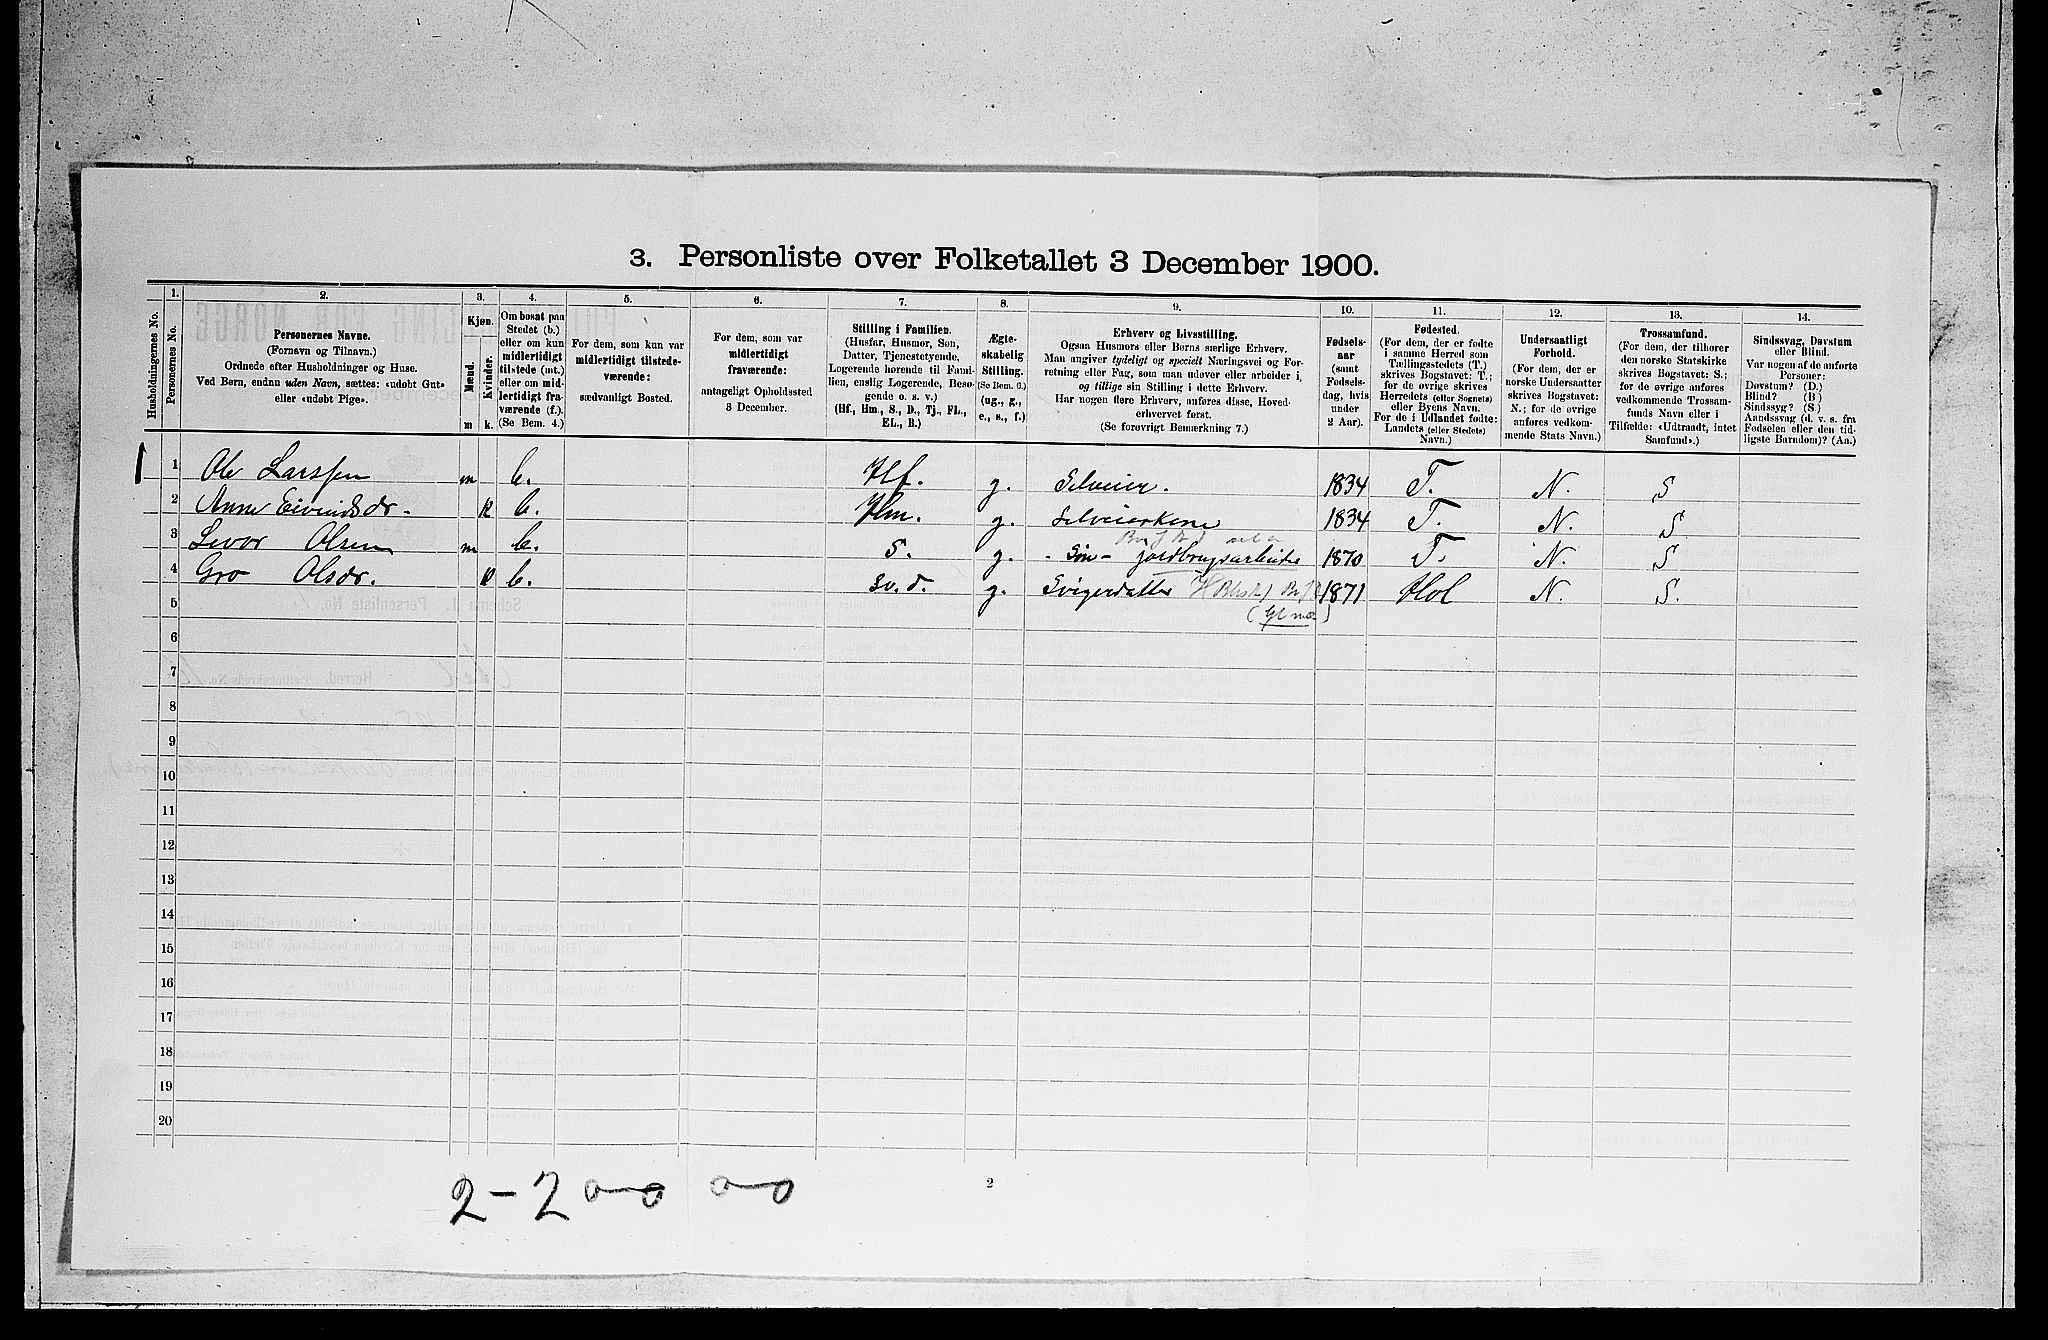 3. Personliste over Folketallet 3 December 1900.
Husholdningernes No.
1. Personernes No.
2.
Personernes Navne.
(Fornavn og Tilnavn.)
Ordnede efter Husholdninger og Huse.
Ved Børn, endnu uden Navn, sættes: «udøbt Gut»
eller «udøbt Pige».
3.
Kjøn.
Mænd.
Kvinder.
m k.
4.
Om bosat paa
Stedet (b.)
eller om kun
midlertidigt
tilstede (mt.)
eller om mid-
lertidigt fra-
værende (f.).
(Se Bem. 4.)
5.
For dem, som kun var
midlertidigt tilstede-
værende:
sædvanligt Bosted.
6.
For dem, som var
midlertidigt
fraværende:
antageligt Opholdssted
3 December.
7.
Stilling i Familien.
(Husfar, Husmor, Søn,
Datter, Tjenestetyende,
Logerende hørende til Fami-
lien, enslig Logerende, Besø-
gende o. s. v.)
(Hf., Hm., S., D., Tj., FL.,
EL., B.)
8.
Ægte-
skabelig
Stilling.
(Se Bem. 6.)
(ug., g.,
e., s., f.)
9.
Erhverv og Livsstilling.
Ogsaa Husmors eller Børns særlige Erhverv.
Man angiver tydeligt og specielt Næringsvei og For-
retning eller Fag, som man udøver eller arbeider i,
og tillige sin Stilling i dette Erhverv.
Har nogen flere Erhverv, anføres disse, Hoved-
erhvervet først.
(Se forøvrigt Bemærkning 7.)
10.
Fødsels-
aar
(samt
Fødsels-
dag, hvis
under
2 Aar).
11.
Fødested.
(For dem, der er fødte
i samme Herred som
Tællingsstedets (T.)
skrives Bogstavet: T.;
for de øvrige skrives
Herredets (eller Sognets)
eller Byens Navn.
For de i Udlandet fødte:
Landets (eller Stedets)
Navn.)
12.
Undersaatligt
Forhold.
(For dem, der er
norske Undersaatter
skrives Bogstavet:
N.; for de øvrige
anføres vedkom-
mende Stats Navn.)
13.
Trossamfund.
(For dem, der tilhører
den norske Statskirke
skrives Bogstavet: S.;
for de øvrige anføres
vedkommende Trossam-
funds Navn eller i
Tilfælde: «Udtraadt, intet
Samfund».)
14.
Sindssvag, Døvstum
eller Blind.
Var nogen af de anførte
Personer:
Døvstum? (D.)
Blind? (B.)
Sindssyg? (S.)
Aandssvag (d. v. s. fra
Fødselen eller den tid-
ligste Barndom)? (Aa.)
1 1 Ole Larssen m b. Hf. g. Selveier. 1834 T. N. S
2 Anne Eivindsdr. k b. Hm. g. Selveierkone 1834 T. N. S.
3 Levor Olsen m b. S. g. - Søn - jordbrugsarbeider 1870 T. N. S
4 Gro Olsdr. k b. sv. d. g. Svigerdatter 1871 Hol N. S.
5
6
7
8
9
10
11
12
13
14
15
16
17
18
19
20
2 - 2 0-0 0-0
2